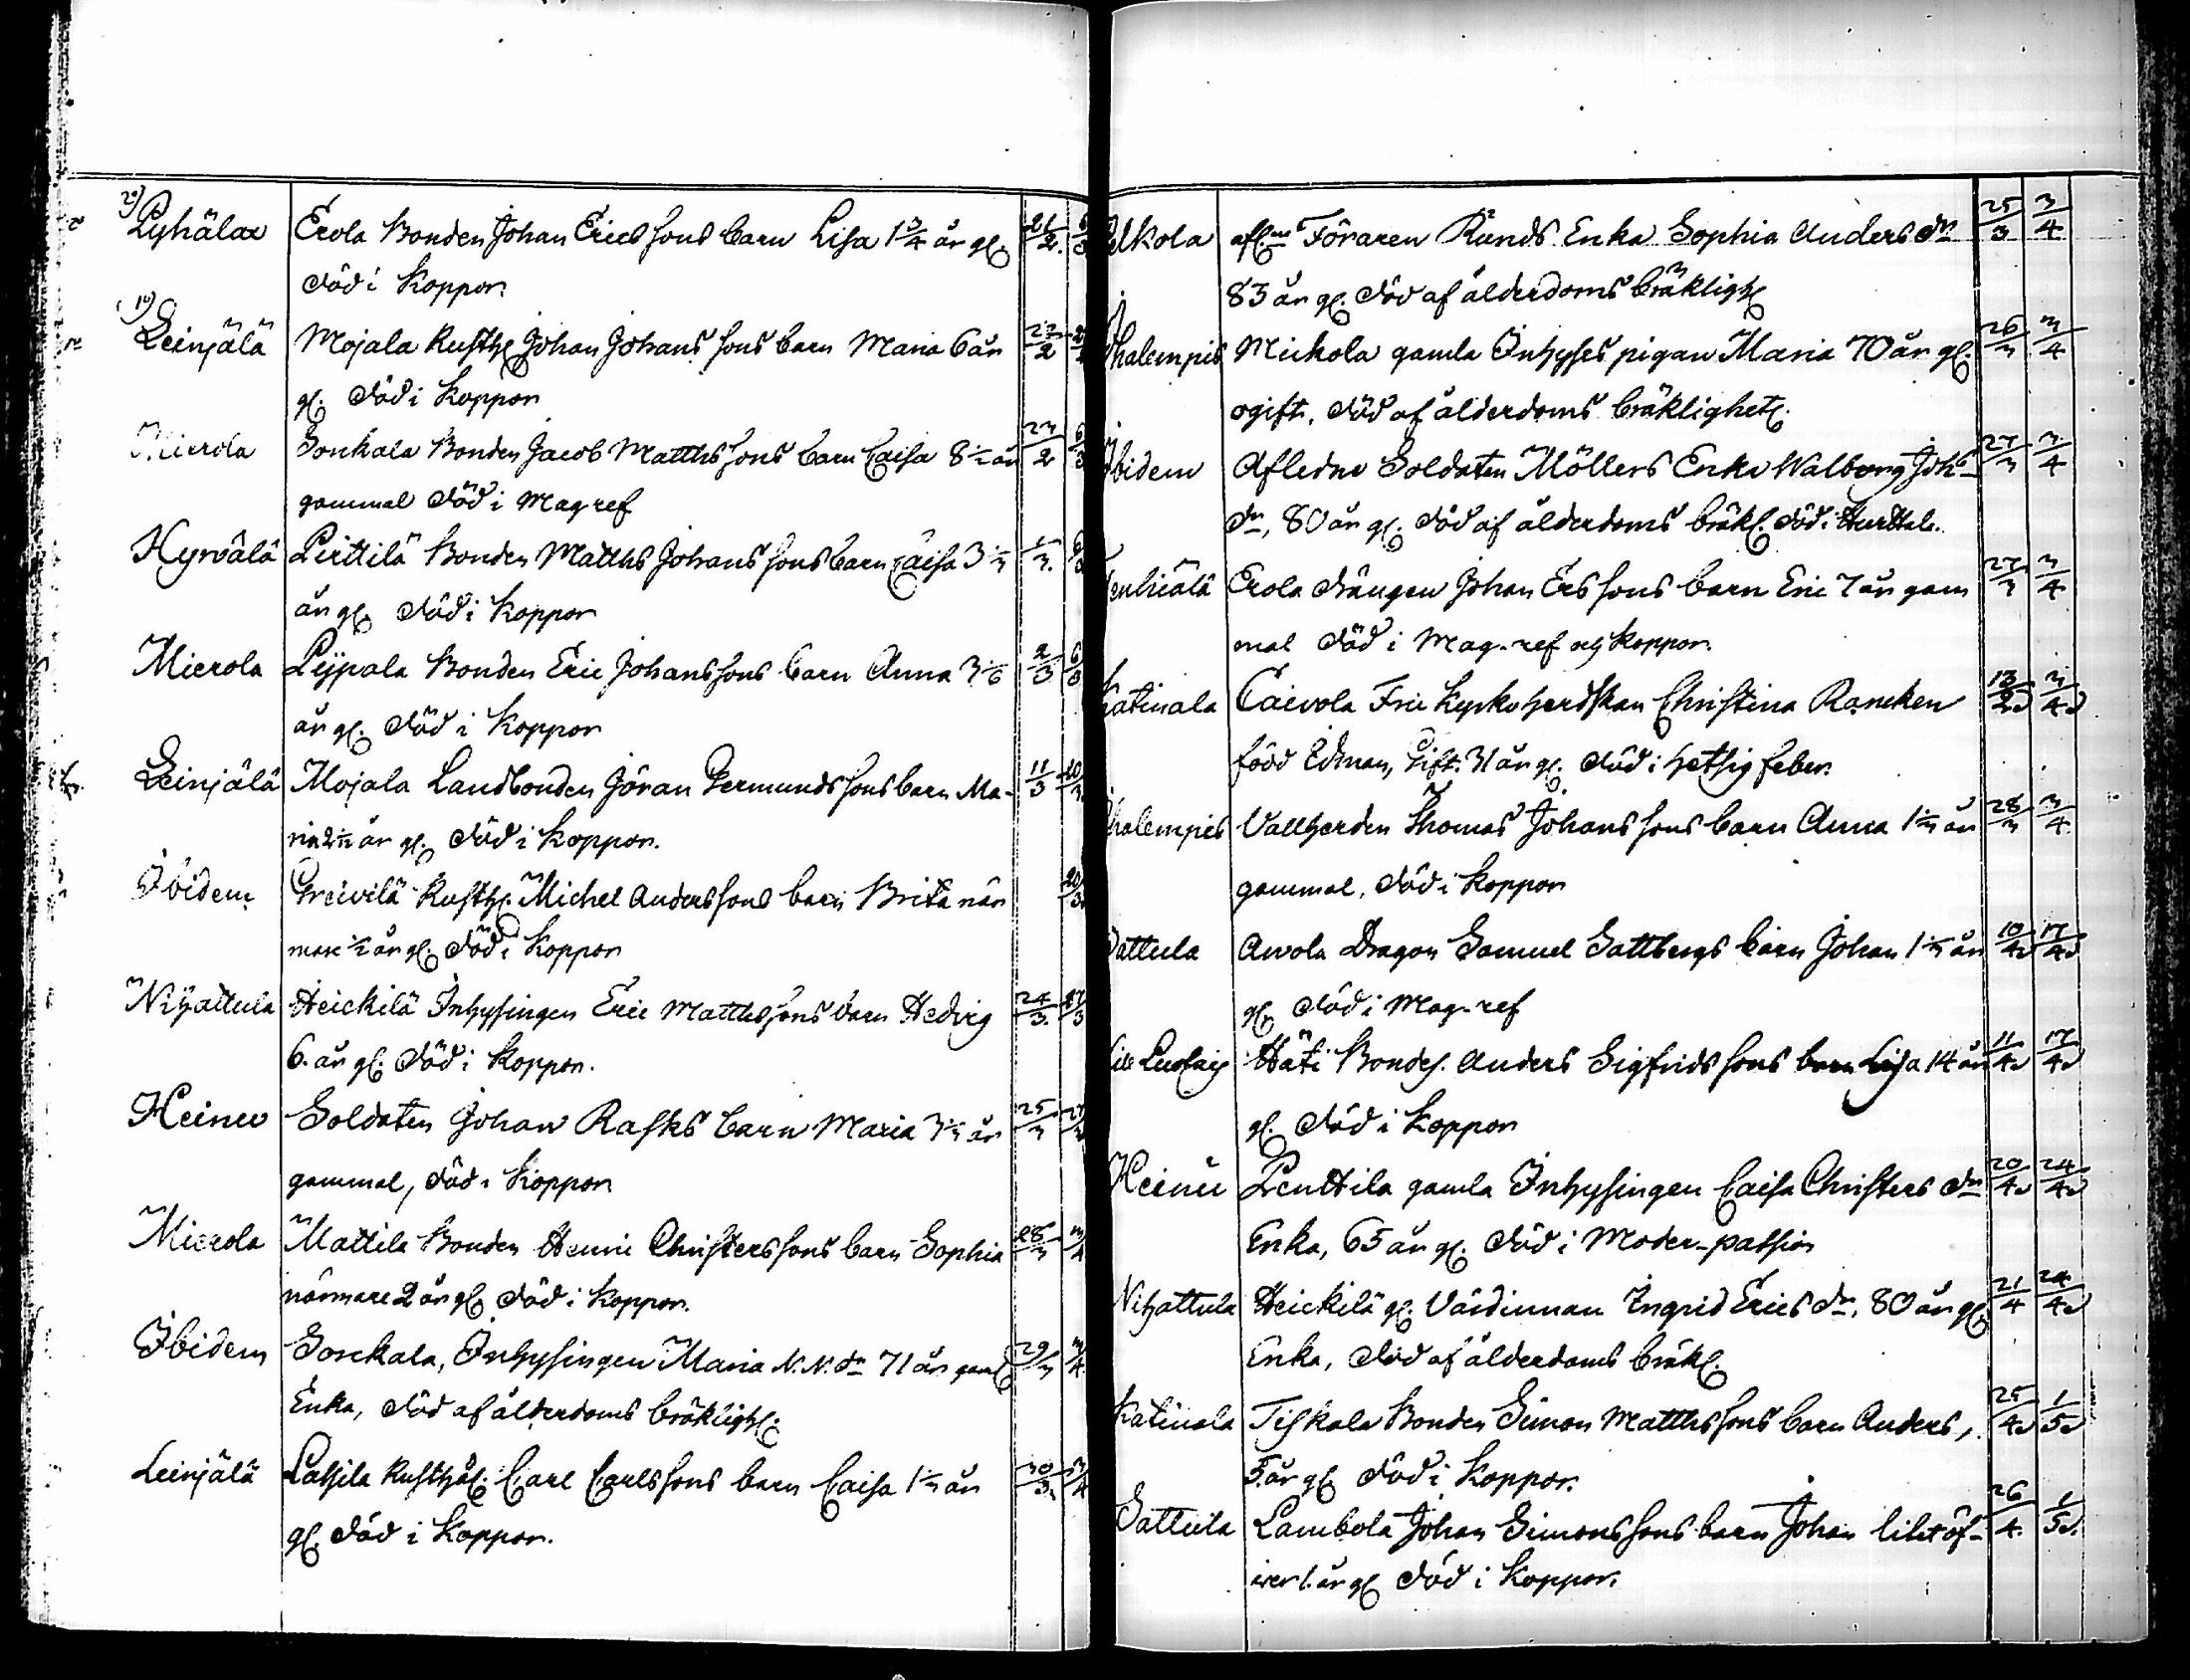 2) Pyhälax Erola Bonden Johan Ericssons barn Lisa 1 3/4 år gl. 21/2.
död i Koppor.
1) Leinjälä Mojala Rusth. Johan Johanssons barn Maria 6 år 22/2
gl. död i Koppor
Mierola Sonkala Bonden Jacob Matthssons barn Caisa 8 1/2 år 23/2
gammal död i Magref
Hyrvälä Perttilä Bonden Matths Johanssons barn Caisa 3 1/3 1/3.
år gl. död i Koppor
Mierola Leppala Bonden Eric Johanssons barn Anna 3 1/6 2/3
år gl. död i Koppor
Leinjälä Mojala Landbonden Göran Permundssons barn Ma- 11/3
ria 2 1/2 år gl. död i Koppor.
Ibidem Greivilä Rusth. Michel Anderssons barn Brita när
mare 1/2 år gl. död i Koppor
Nihattula Heickilä Inhysingen Eric Matthssons barn Hedvig 24/3. 27/3
6. år gl. död i Koppor.
Heinu Soldaten Johan Rasks barn Maria 3 1/3 år 25/3
gammal, död i Koppor
Mierola Mattila Bonden Henric Christerssons barn Sophia 28/3 3/4
närmare 2 år gl. död i Koppor.
Ibidem Sonckala, Inhysingen Maria N. N. dr 71 år gaml. 29/3 3/4
Enka, död af ålderdoms bräklighet.
Leinjälä Lassila Rusthål. Carl Carlssons barn Caisa 1 1/3 år 30/3. 3/4
gl. död i Koppor.
Pelkola afl:ne Föraren Runds Enka Sophia Anders dr 25/3 3/4
83 år gl. död af ålderdoms bräkligh.
Thalempis Mickola gamla Inhyses pigan Maria 70 år gl. 26/3 3/4
ogift, död af ålderdoms bräklighet.
Ibidem Afledne Soldaten Möllers Enka Walborg Joh- 27/3 3/4
dr, 80 år gl. död af ålderdoms bräkl. död i Hurttala.
Erola drängen Johan Erssons barn Eric 7 år gam 27/3 3/4
mal död i Mag-ref och koppor.
Katinala Caivola Fri Kyrkoherdskan Christina Rancken 13/2 3/4
född Edman, Gift. 31 år gl. död i hetsig feber.
Thalempis Vallherden Thomas Johanssons barn Anna 1 2/3 år 28/3 3/4
gammal, död i Koppor
Sattula Awola Dragon Samuel Sattbergs barn Johan 1 1/3 år 10/4 17/4
gl. död i Mag-ref
Häti Bondes. Anders Sigfridssons barn Lisa 14 år 11/4 17/4
gl. död i Koppor
Heinu Penttila gamla Inhysingen Caisa Christers dr 20/4 24/4
Enka, 65 år gl. död i Moder-passion
Nihattula Heickilä gl. Värdinnan Ingrid Erics dr, 80 år gl. 21/4 24/4
Enka, död af ålderdoms bräkl.
Katinala Tiskala Bonden Simon Matthssons barn Anders, 25/4 1/5
5 år gl. död i Koppor.
Sattula Lambola Johan Simonssons barn Johan litet öf- 26/4. 1/5.
wer 1. år gl. död i Koppor.